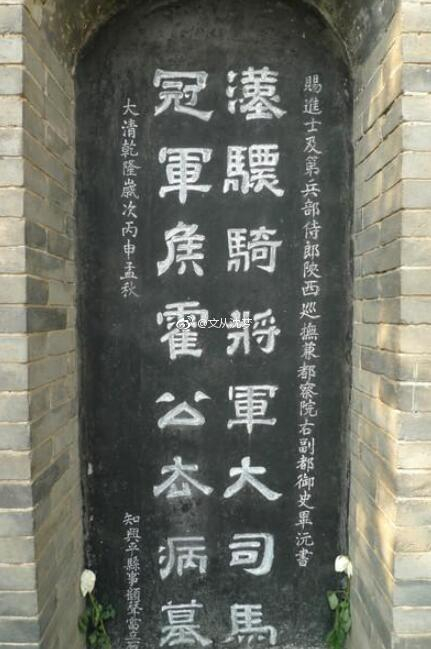 賜進士及第兵部侍郎陝西巡撫兼都察院右副都御史畢沅書
漢驃騎將軍大司馬
冠軍侯霍公去病墓
大清乾隆歲次丙申孟秋
知興平縣事顧聲雷立石
@文从沈梦